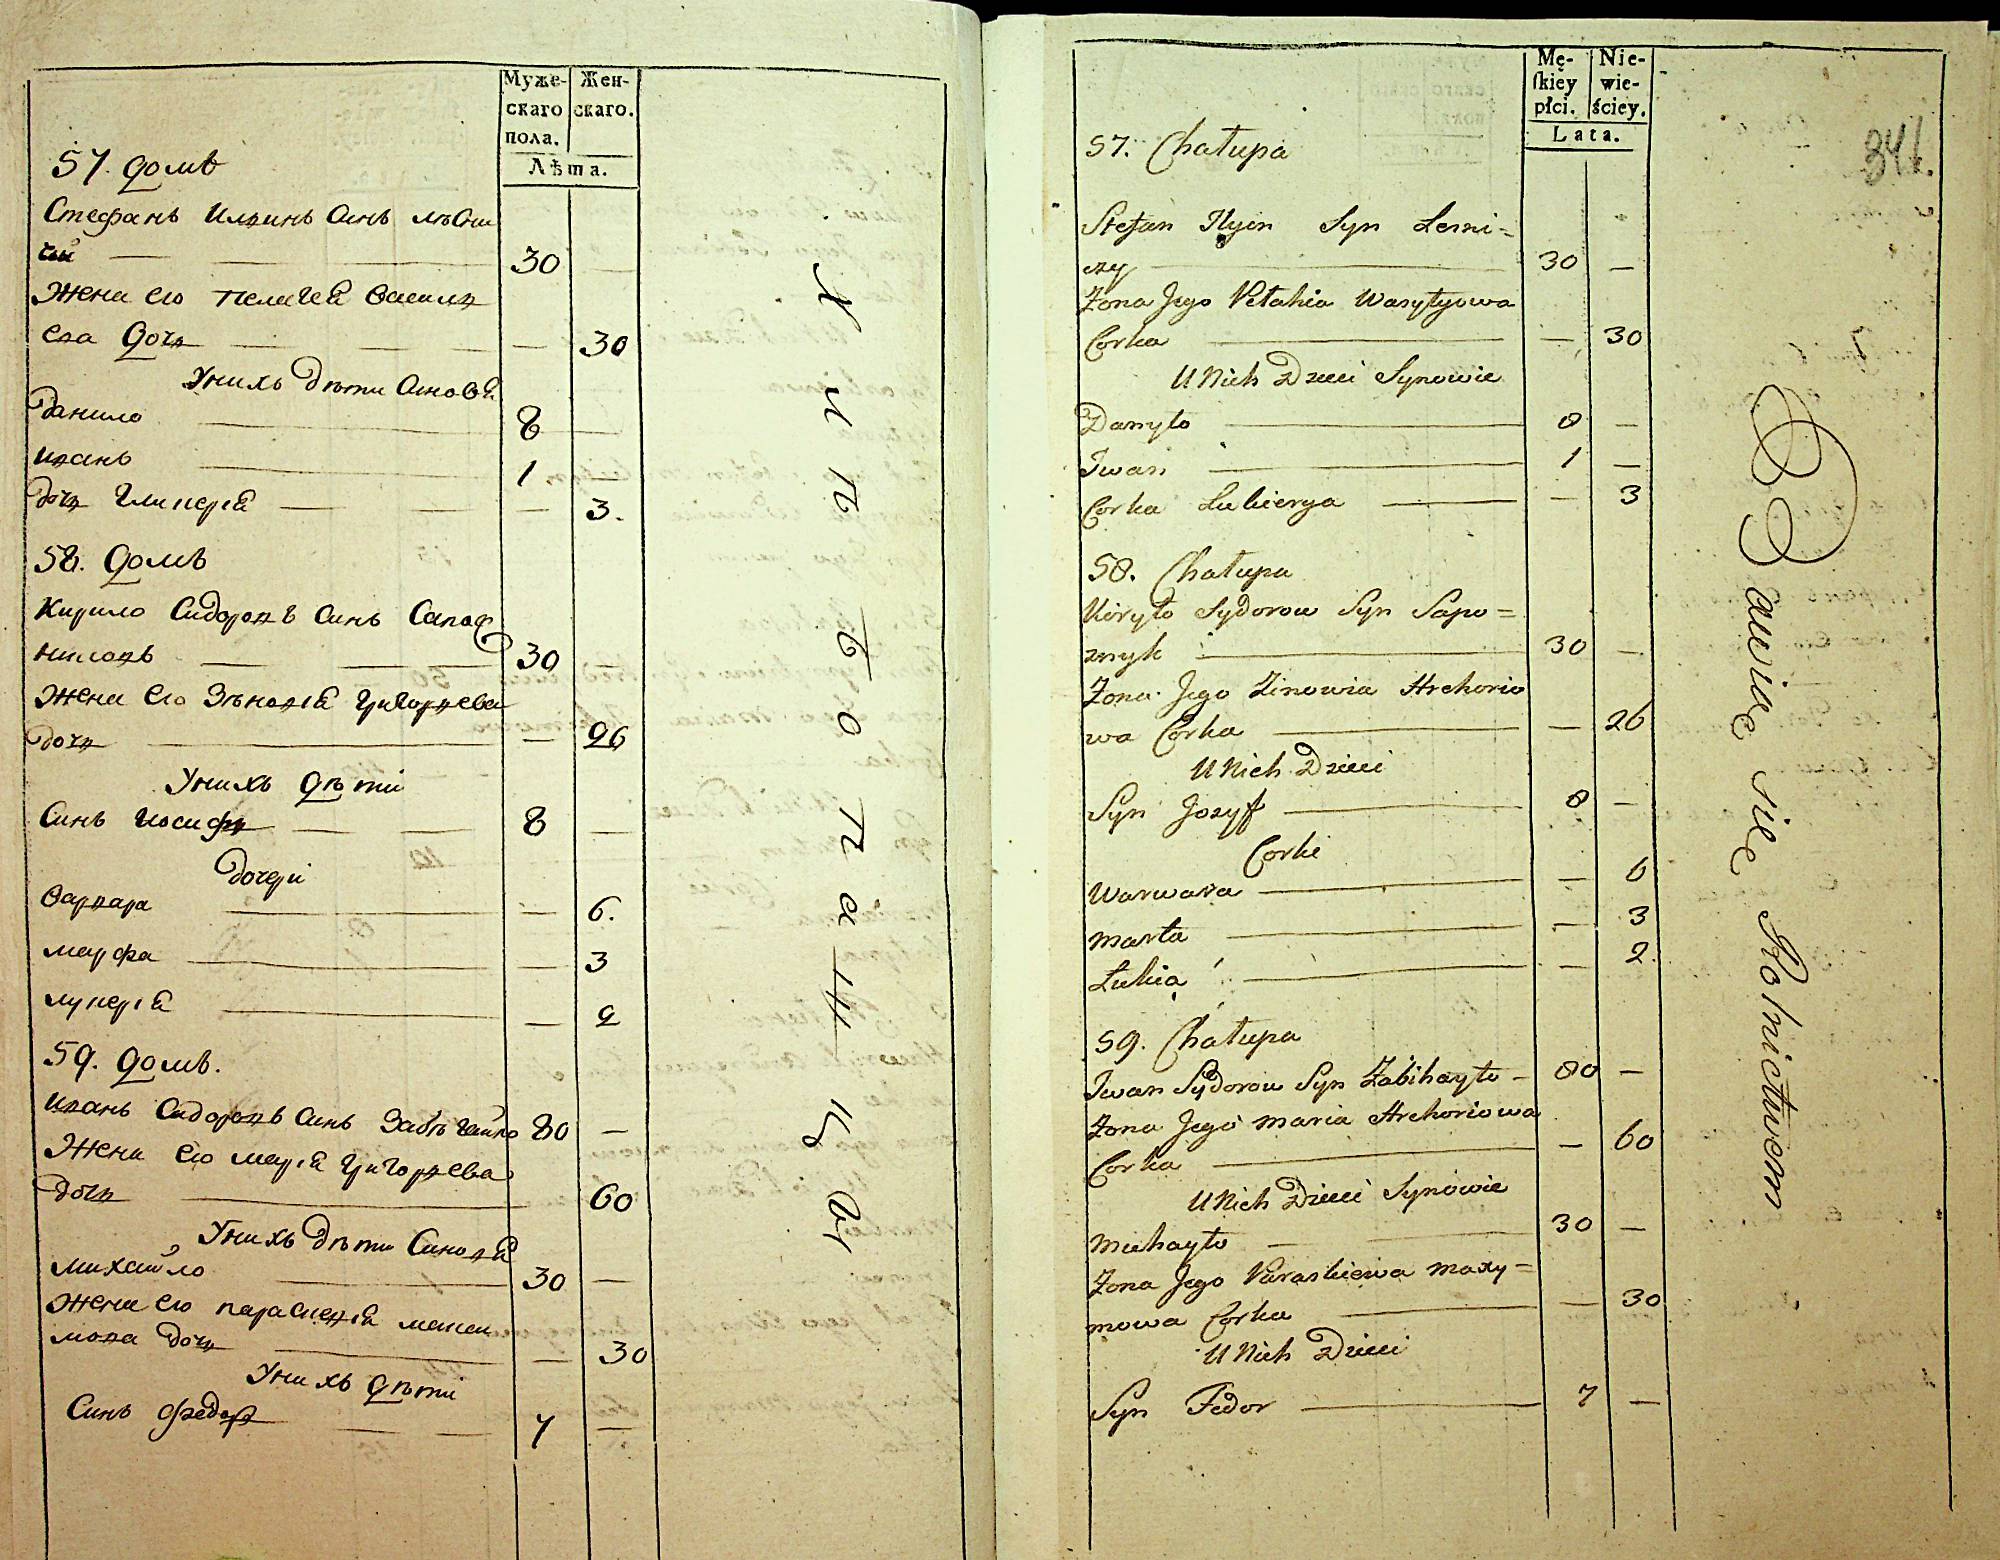 Муже-
скаго
пола.
Жен-
скаго.
Лѣта.
57. домъ
Стефанъ Илинъ Синъ лѣсни
чий 30 —
Жена его Пелагея Васили
ева дочь — 30
У нихъ дѣти Синовя
Данило 8 —
Иванъ 1 —
дочь Гликерія — 3.
58. домъ
Кирило Сидоровъ Синъ Сапож
никовъ 30 —
Жена его Зѣновія Григориева
дочь — 26
У нихъ дѣти
Синъ Иосифъ 8 —
дочери
Варвара — 6.
марфа — 3
лукерія — 2
59. домъ.
Иванъ Сидоровъ Синъ Забѣгайло 80 —
Жена его марія Григориева
дочь 60
У нихъ дѣти Синовя
михайло 30 —
Жена его параскевія макси
мова дочь — 30
У нихъ дѣти
Синъ Федоръ 7 —
Хлѣбопашцы
Mę-
skiey
płci.
Nie-
wie-
ściey.
Lata.
341.
57. Chałupa
Stefan Ilyin Syn Leśni=
czy 30 —
Żona Jego Pełahia Wasylyowa
Corka — 30
U Nich Dzieci Synowie
Danyło 8 —
Iwan 1 —
Corka Lukierya — 3
58. Chałupa
Kiryło Sydorow Syn Sapo=
żnyk 30 —
Żona Jego Zinowia Hrehorio
wa Corka — 26
U Nich Dzieci
Syn Jozyff 8 —
Corki
Warwara — 6
Marta — 3
Łukia — 2
59. Chałupa
Iwan Sydorow Syn Zabihayło 80 —
Żona Jego Maria Hrehoriowa
Corka — 60
U Nich Dzieci Synowie
Michayło 30 —
Żona Jego Paraskiewa Maxy=
mowa Corka — 30
U Nich Dzieci
Syn Fedor 7 —
Bawią się Rolnictwem